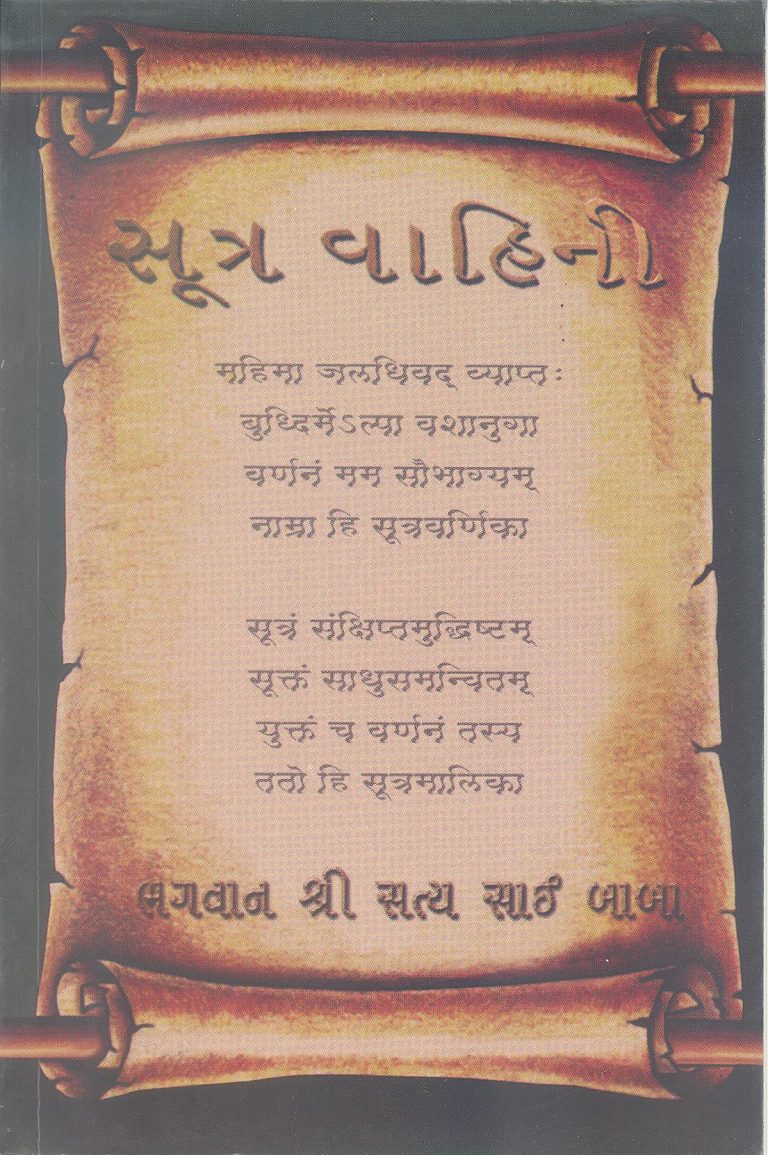 સૂત્ર વાહિની
महिमा जलधिवद् व्याप्तः
बुध्दिर्मेऽल्पा वशानुगा
वर्णनं मम सौभाग्यम्
नाम्ना हि सूत्रवर्णिका
सूत्रं संक्षिप्तमुद्धिष्टम्
सूक्तं साधुसमन्वितम्
युक्तं च वर्णनं तस्य
ततो हि सूत्रमालिका
ભગવાન શ્રી સત્ય સાઈ બાબા